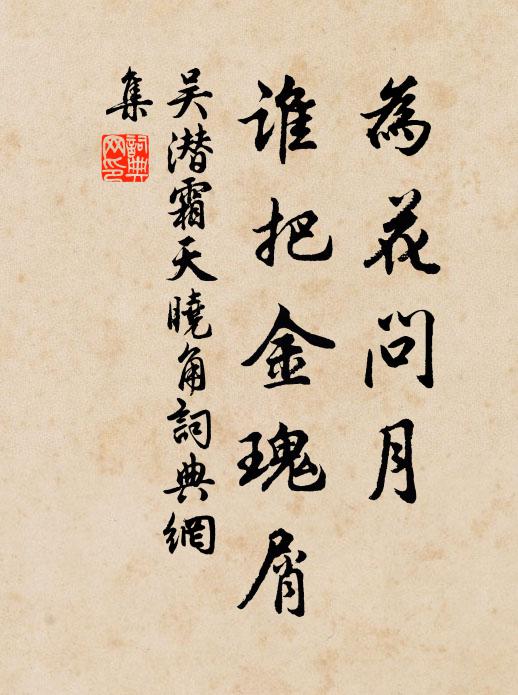 為花問月
誰把金瑰屑
吴潜霜天曉角詞典網
集
詞典
网印